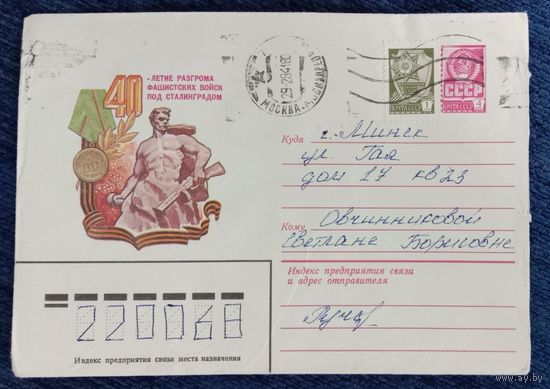 40
-ЛЕТИЕ РАЗГРОМА
ФАШИСТСКИХ ВОЙСК
ПОД СТАЛИНГРАДОМ
МОСКВА
ПОЧТА СССР
1
ПОЧТА СССР
4
СССР
Куда г. Минск
ул. Гая
дом 17 кв 23
Кому Овчинниковой
Светлане Борисовне
Индекс предприятия связи
и адрес отправителя
220068
Индекс предприятия связи места назначения
www.ay.by